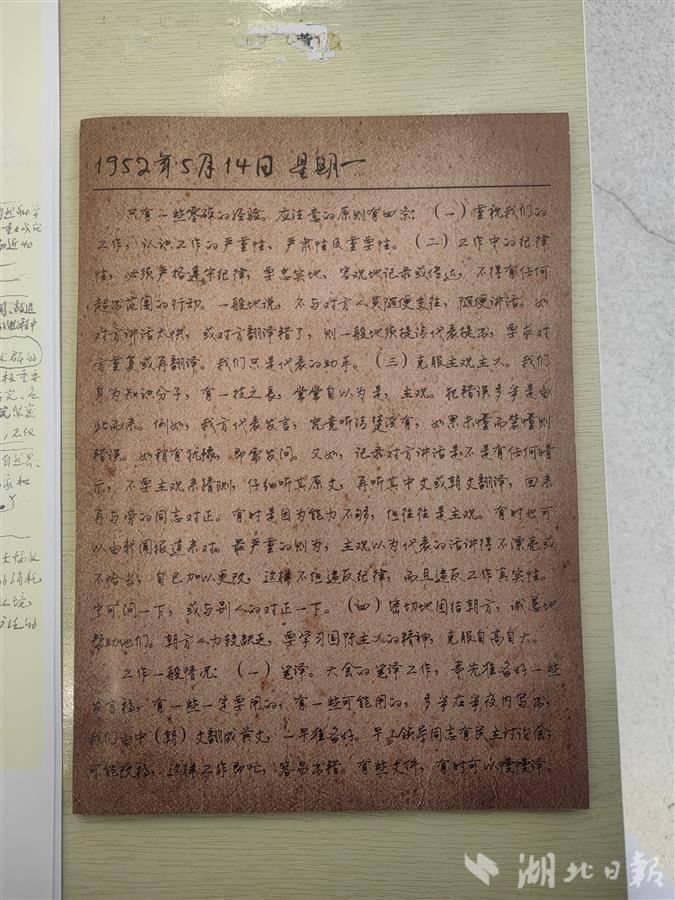 1952年5月14日 星期一
只有一些零碎的经验。应注意的原则有四条：（一）重视我们的
工作，认识工作的严重性、严肃性及重要性。（二）工作中的纪律
性，必须严格遵守纪律，要忠实地、客观地记录或传达，不得有任何
超出范围的行动。一般地说，不与对方人员随便来往，随便讲话。如
对方讲话太快，或对方翻译错了，则一般地须提请代表提出，要求对
方重复或再翻译。我们只是代表的助手。（三）克服主观主义。我们
身为知识分子，有一技之长，常常自以为是，主观。犯错误多半是由
此而来。例如，我方代表发言，究竟听清楚没有，如果未懂而装懂则
错误。如稍有犹豫，即需发问。又如，记录对方讲话是不是有任何暗
示，不要主观来猜测，仔细听其原文，再听其中文或朝文翻译，回来
再与旁的同志对正。有时是因为能力不够，但往往是主观。有时也可
以由新闻报道来对。最严重的则为，主观以为代表的话讲得不漂亮或
不恰当，自己加以更改，这样不但违反纪律，而且违反工作真实性。
宁可问一下，或与别人的对正一下。（四）密切地团结朝方，诚恳地
帮助他们。朝方人力较缺乏，要学习国际主义的精神，克服自高自大。
工作一般情况：（一）笔译。大会的笔译工作，事先准备好一些
发言稿，有一些一定要用的，有一些可能用的，多半在半夜内写出，
我们由中（朝）文翻成英文，一早准备好。早上领导同志有民主讨论会，
可能改稿，这样工作即忙，容易出错。有些文件，有时可以慢慢译。
湖北日报